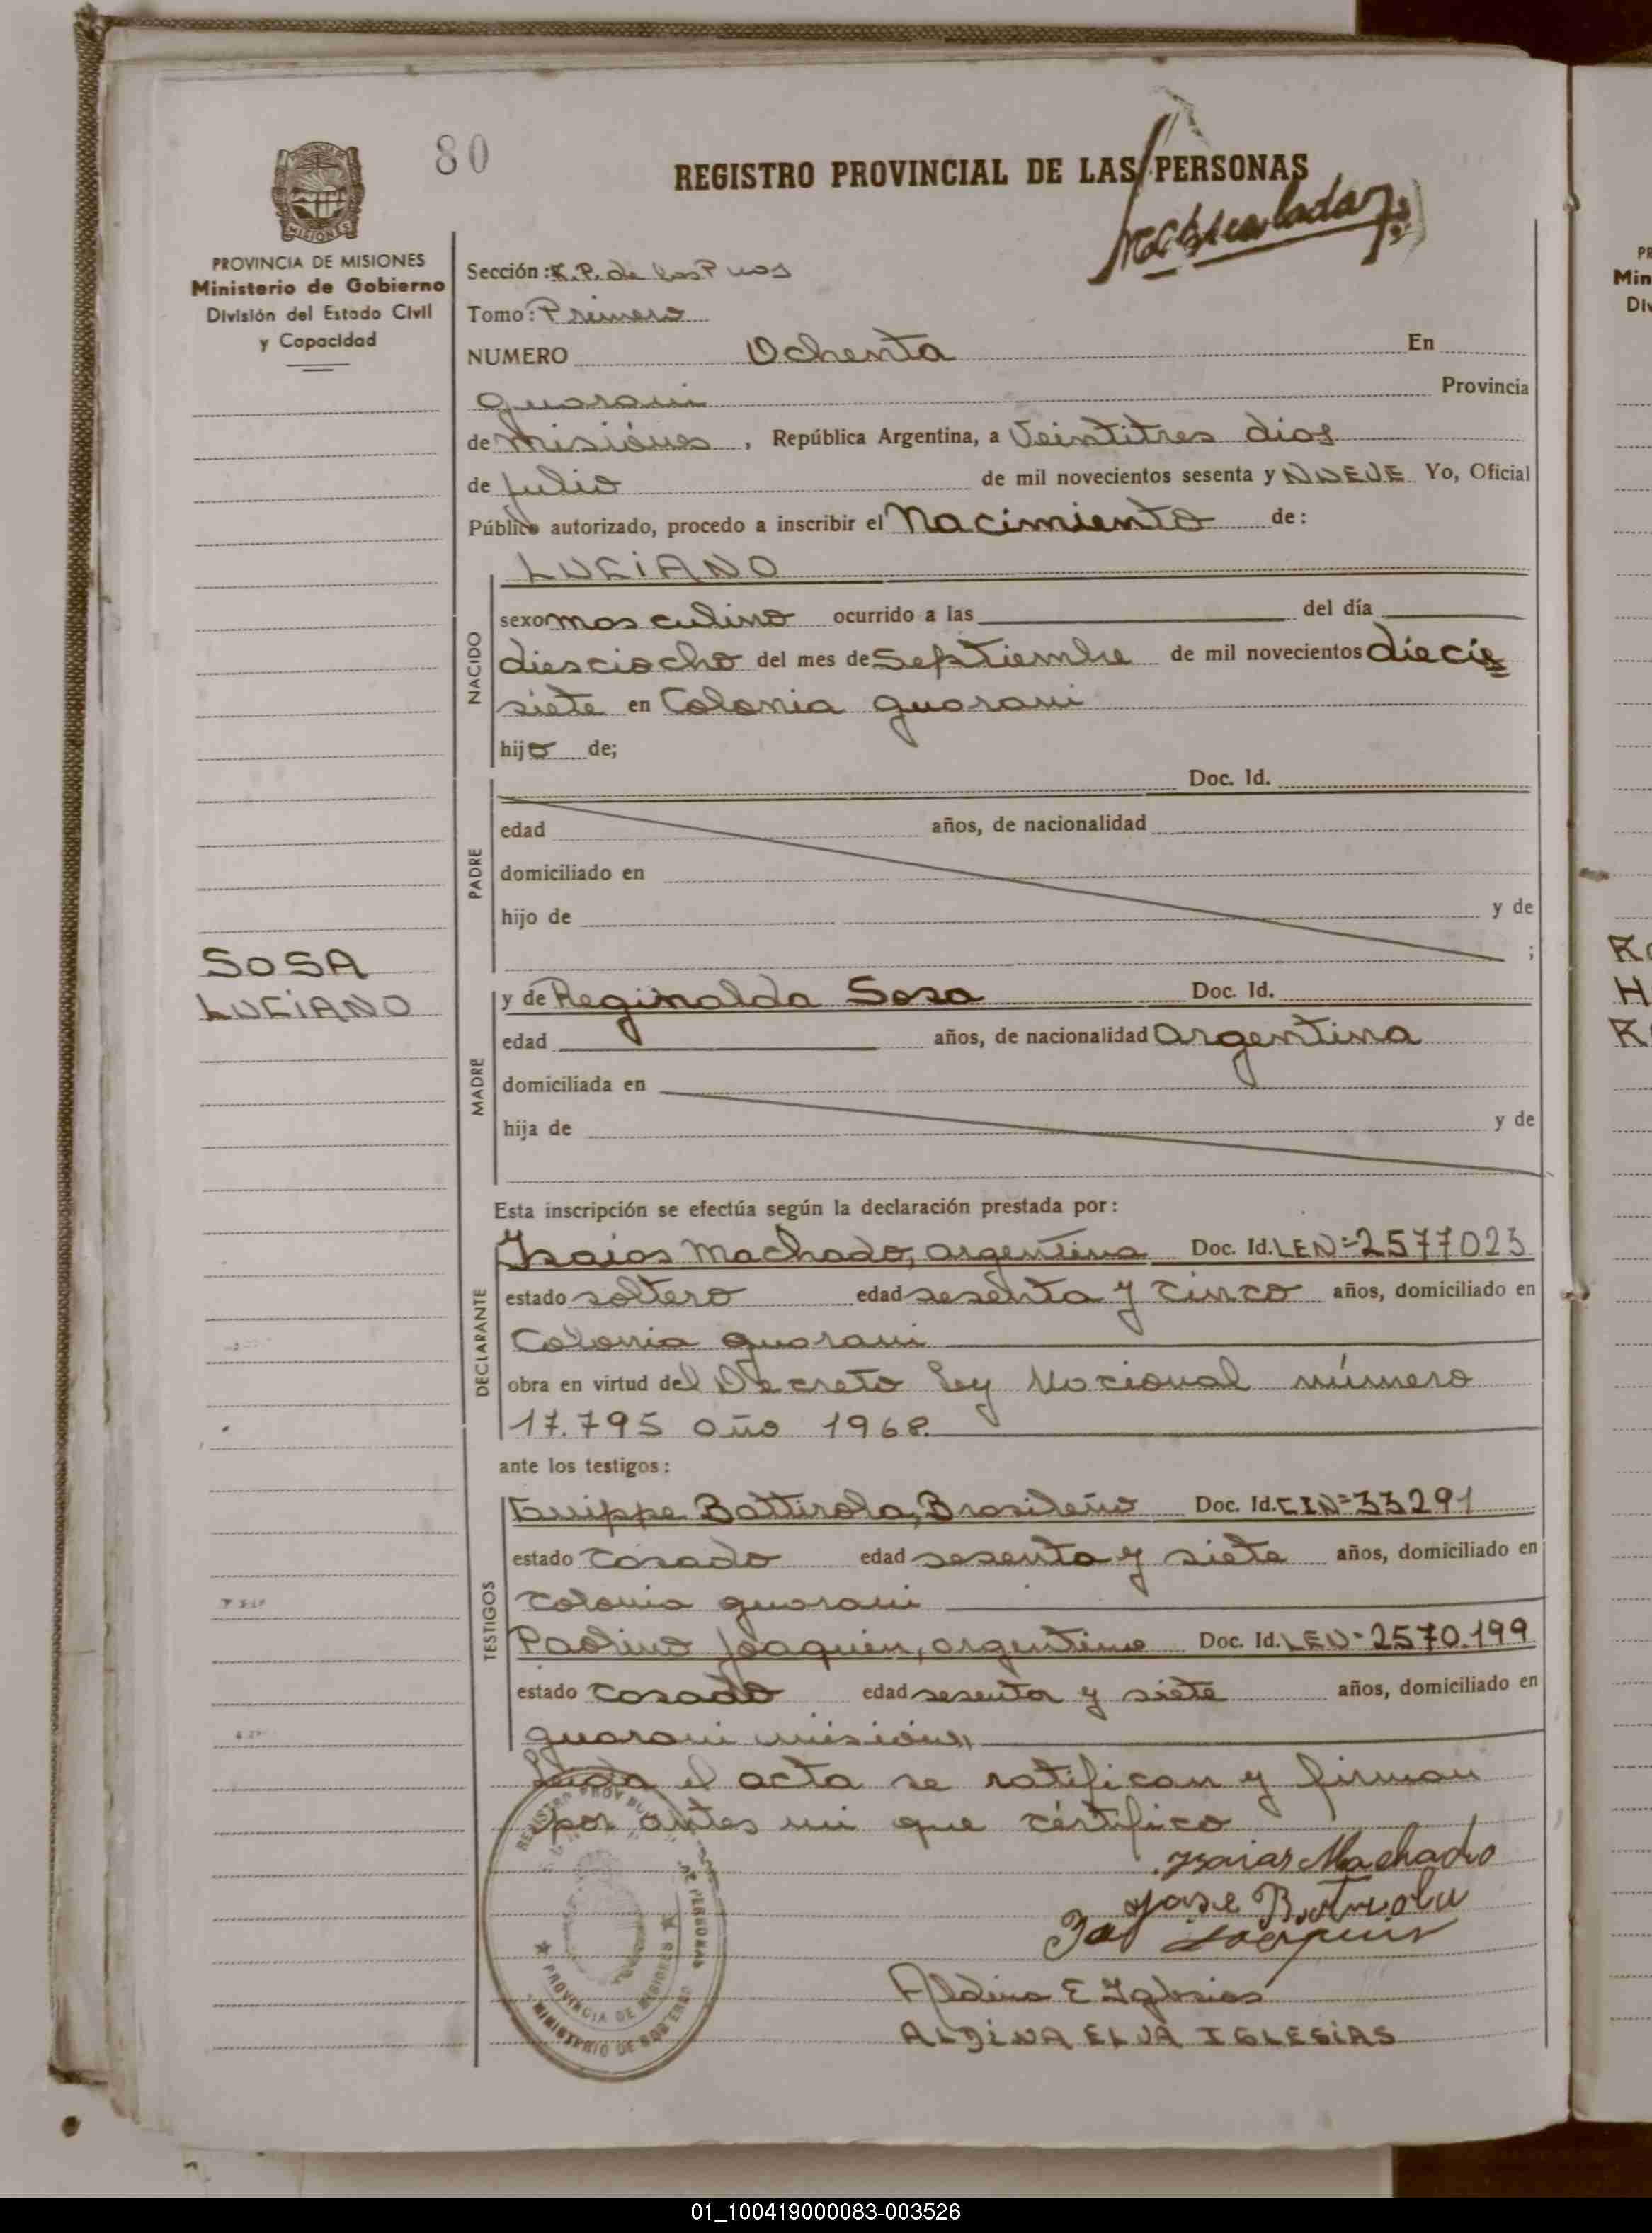 80
REGISTRO PROVINCIAL DE LAS PERSONAS
MISIONES
PROVINCIA DE MISIONES
Ministerio de Gobierno
División del Estado Civil
y Capacidad
Sección: R.P. de las
Tomo: Primero
NUMERO Ochenta En
guarani Provincia
de misiónes, República Argentina, a Veintitres dias
de julio de mil novecientos sesenta y NUEVE Yo, Oficial
Público autorizado, procedo a inscribir el Nacimiento de:
LUCIANO
NACIDO
sexo masculino ocurrido a las del día
diesciocho del mes de Septiembre de mil novecientos diecis
siete en Colonia guarani
hijo de;
PADRE
Doc. Id.
edad años, de nacionalidad
domiciliado en
hijo de y de
;
SOSA
LUCIANO
MADRE
y de Reginalda Sosa Doc. Id.
edad años, de nacionalidad argentina
domiciliada en
hija de y de
Esta inscripción se efectúa según la declaración prestada por:
DECLARANTE
Isaias Machado, argentino Doc. Id. LEN=2577023
estado soltero edad sesenta y cinco años, domiciliado en
Colonia guarani
obra en virtud del Decreto Ley Nacional número
17.795 año 1968.
ante los testigos:
TESTIGOS
Battirola, Brasileño Doc. Id. CIN=33291
estado casado edad sesenta y siete años, domiciliado en
colonia guarani
Paolino Joaquin, argentino Doc. Id. LEN=2570.199
estado casado edad sesenta y siete años, domiciliado en
guarani misiónes
Leida el acta se ratifican y firman
por antes mi que cértifico
Isaias Machado
Jose
Joaquin
Aldina E Iglesias
ALDINA ELVA IGLESIAS
PROVINCIA DE MISIONES
MINISTERIO DE GOBIERNO
01_100419000083-003526